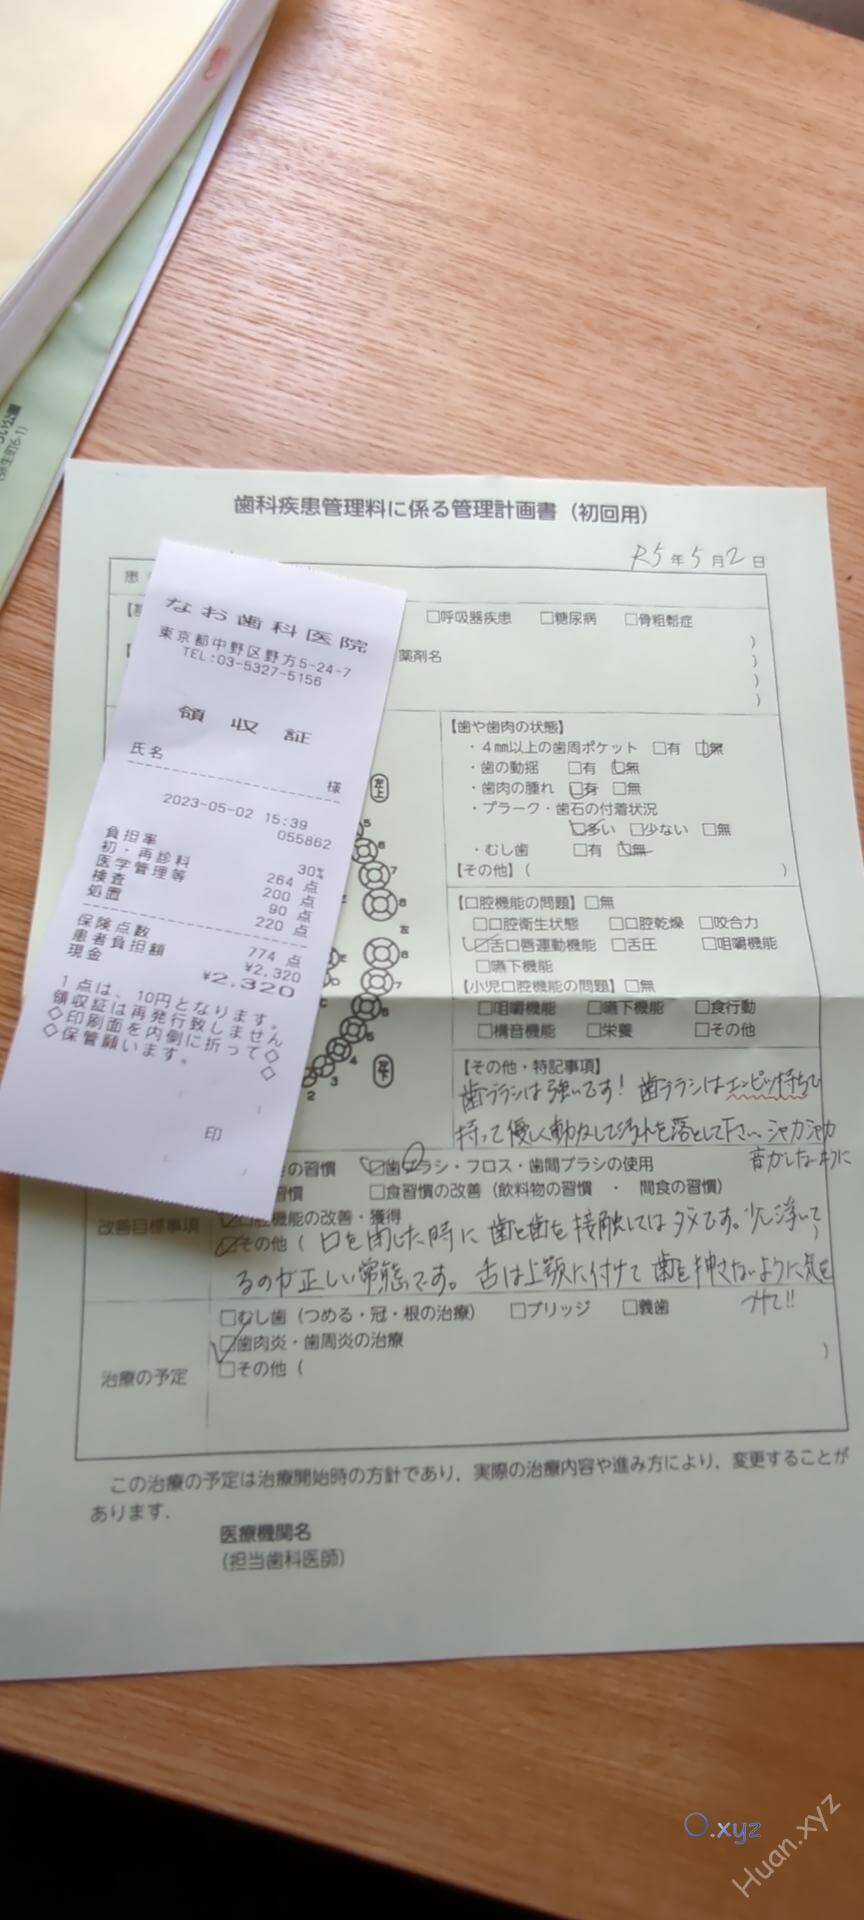 い公園
弥生町6-1)
歯科疾患管理料に係る管理計画書（初回用）
R5年5月2日
患
□呼吸器疾患 □糖尿病 □骨粗鬆症
薬剤名
なお歯科医院
東京都中野区野方5-24-7
TEL:03-5327-5156
領収証
氏名 様
2023-05-02 15:39
055862
負担率 30%
初・再診料 264 点
医学管理等 200 点
検査 90 点
処置 220 点
保険点数 774 点
患者負担額 ¥2,320
現金 ¥2,320
1点は、10円となります。
領収証は再発行致しません
◇印刷面を内側に折って◇
◇保管願います。 ◇
印
左上
5
6
7
8
左
8
7
6
5
4
3
2
左下
【歯や歯肉の状態】
・4㎜以上の歯周ポケット □有 □無
・歯の動揺 □有 □無
・歯肉の腫れ □有 □無
・プラーク・歯石の付着状況
□多い □少ない □無
・むし歯 □有 □無
【その他】( )
【口腔機能の問題】□無
□口腔衛生状態 □口腔乾燥 □咬合力
□舌口唇運動機能 □舌圧 □咀嚼機能
□嚥下機能
【小児口腔機能の問題】□無
□咀嚼機能 □嚥下機能 □食行動
□構音機能 □栄養 □その他
【その他・特記事項】
歯ブラシは強いです！ 歯ブラシはエンピツ持ちで
持って優しく動かして汚れを落として下さい。シャカシャカ
音がしないように
改善目標事項
の習慣 □歯ブラシ・フロス・歯間ブラシの使用
習慣 □食習慣の改善（飲料物の習慣 ・ 間食の習慣）
□口腔機能の改善・獲得
□その他（ 口を閉じた時に 歯と歯を接触してはダメです。少し浮いて ）
るのが正しい状態です。 舌は上顎に付けて 歯を押さないように気を
つけて!!
治療の予定
□むし歯（つめる・冠・根の治療） □ブリッジ □義歯
□歯肉炎・歯周炎の治療
□その他（ ）
この治療の予定は治療開始時の方針であり，実際の治療内容や進み方により，変更することが
あります．
医療機関名
（担当歯科医師）
O.xyz
Huan.xyz